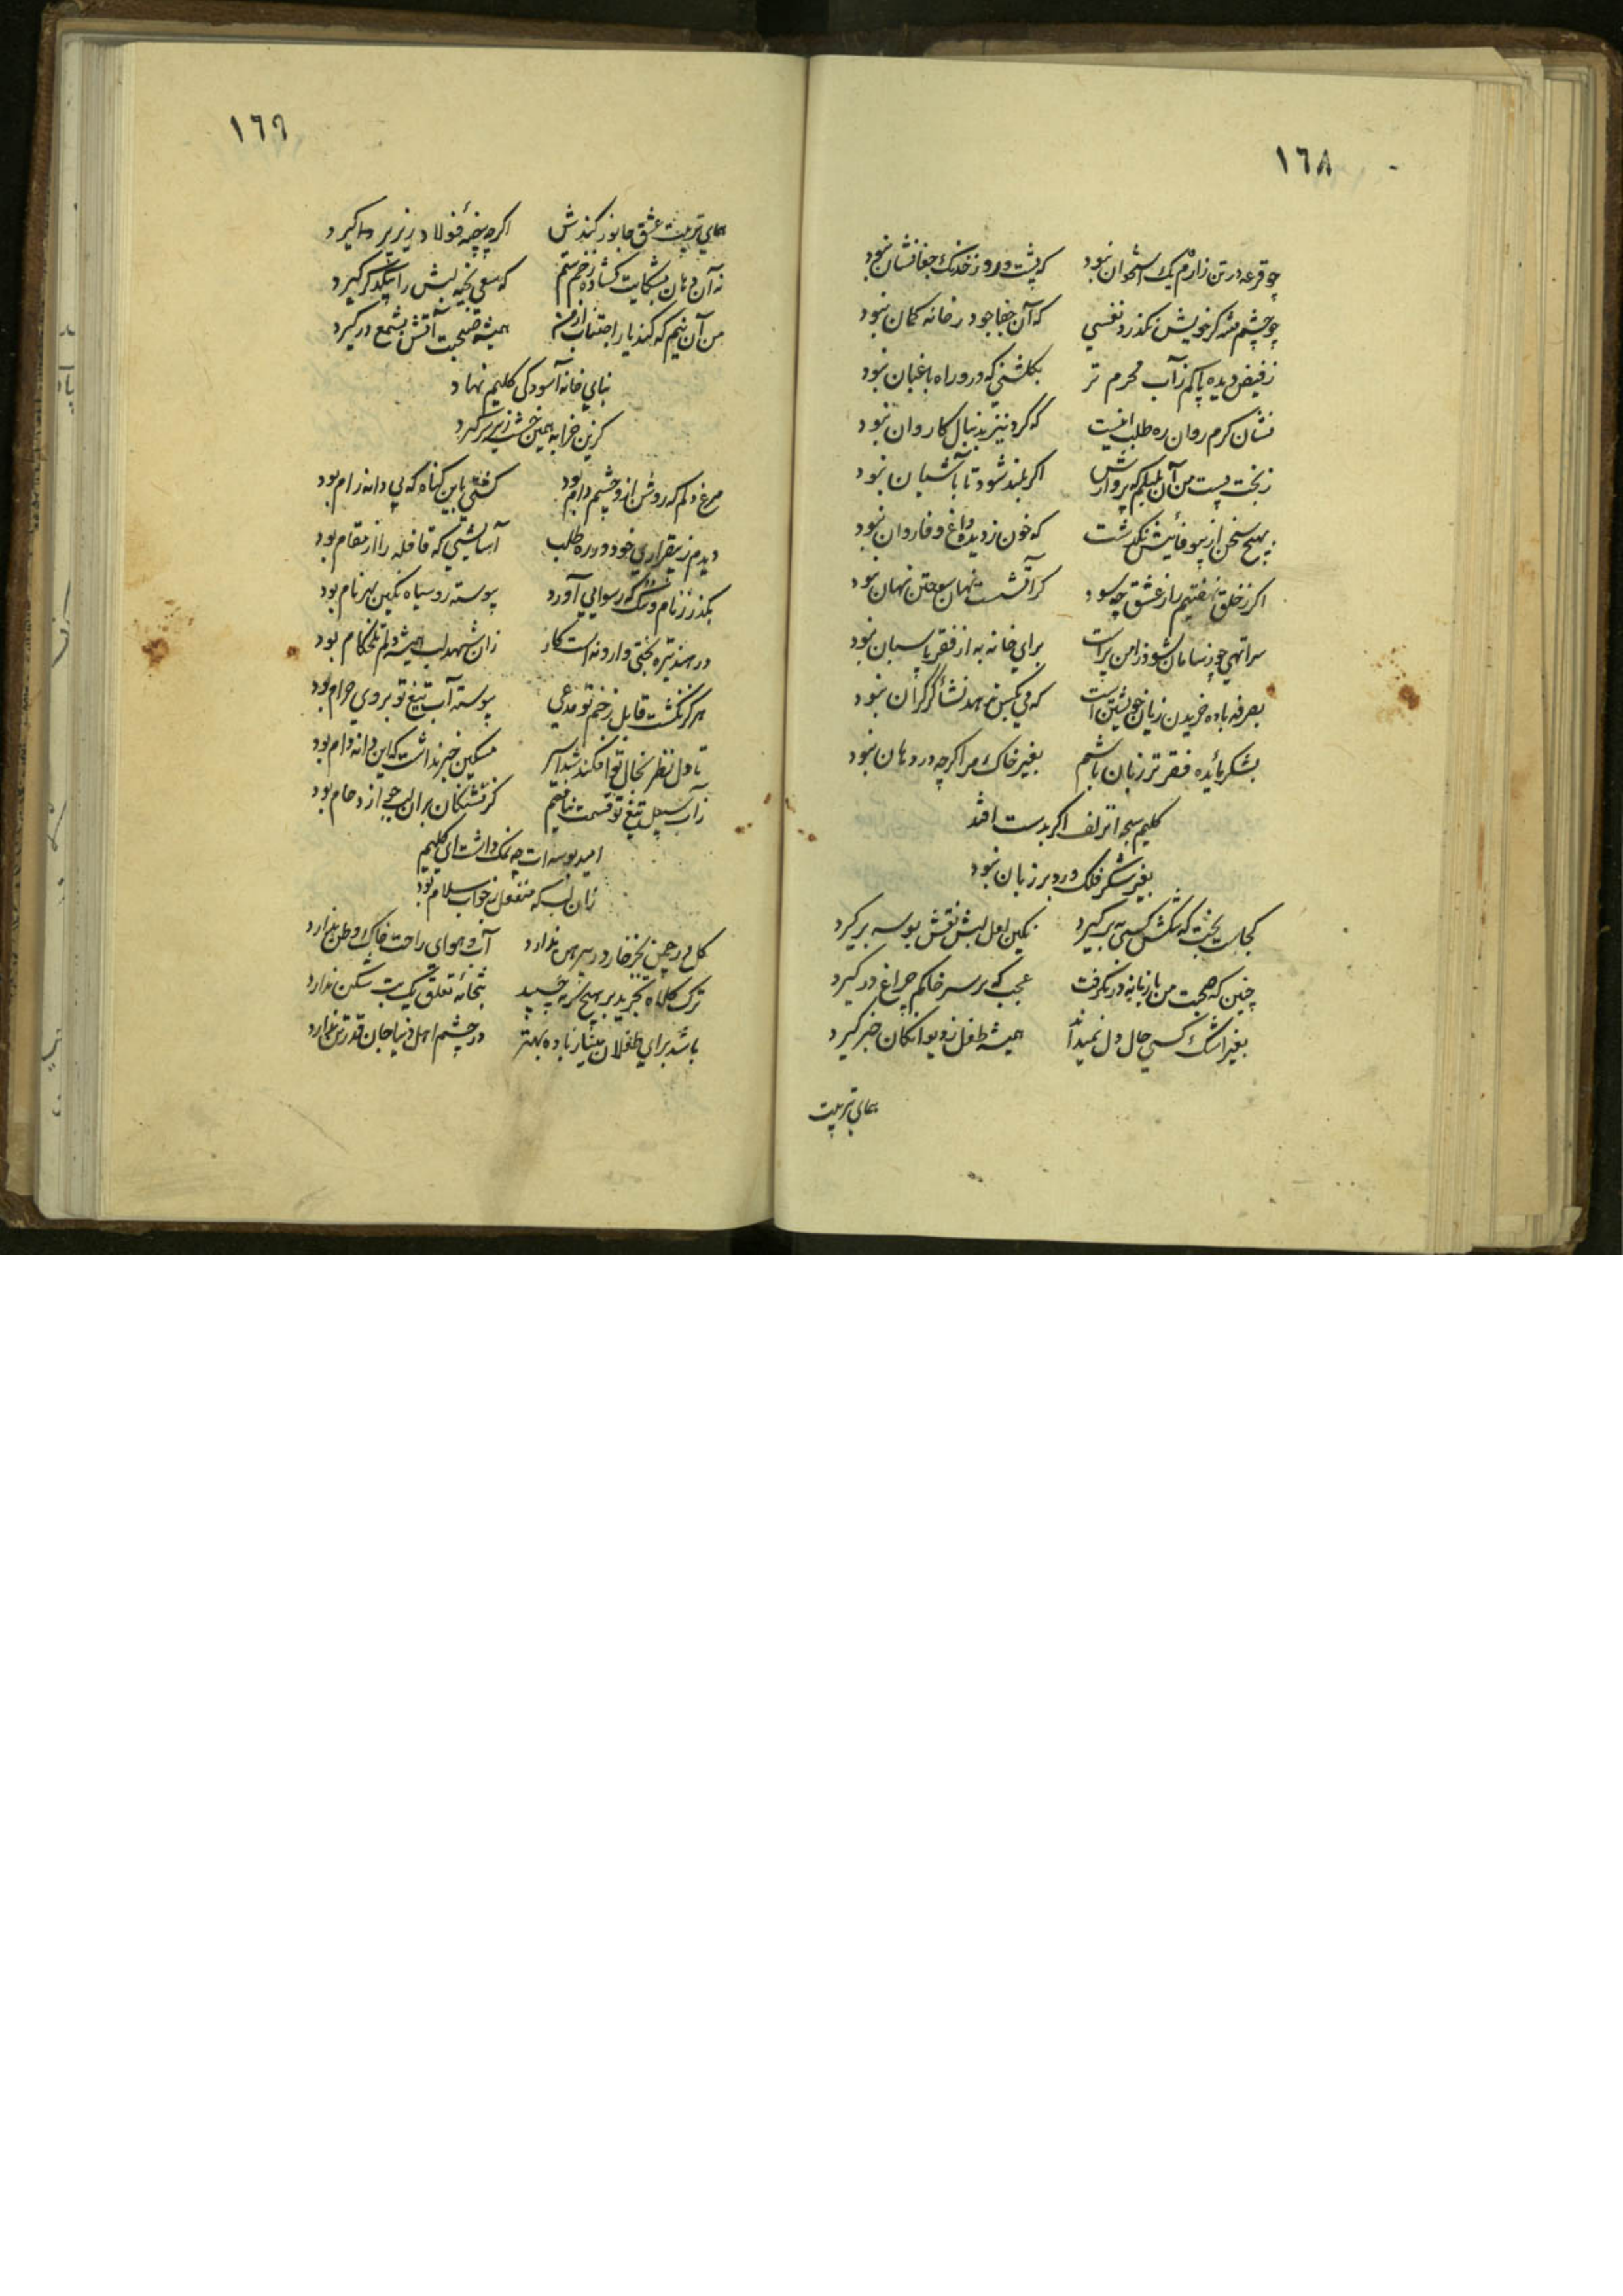 ١٦٨
چو قرعه در تن زارم یک استخوان نبود که پشت و رو ز خدنک جفا نشان نبود
چو چشم مننه کر خویش نکذرد نفسی که آن جفا جو در خانه کمان نبود
ز فیض دیده پاکم ز آب محرم تر بکلشنی که درو راه باغبان نبود
نشان کرم روان ره طلب اینست که کرد نیز بدنبال کاروان نبود
ز بخت پست من آن بلبلم که پروازش اکر بلند شود تا بآشیان نبود
بهیچ سخن از بیوفائیش نکذشت که خون ز دیده داغ وفا روان نبود
اکر ز خلق نهفتیم راز عشق چه سود کر آتشست نهان سوختن نهان نبود
سرا تهی چو ز سامان شود ز امن پر است برای خانه به از فقر پاسبان نبود
بصرفه باده خریدن زیان خویشتن است که می بکس ندهد نشأ کر کران نبود
بشکر مائده فقر تر زبان باشم بغیر خاک مرا کرچه در دهان نبود
کلیم سبحه از زلف اکر بدست افتد
بغیر شکر فلک ورد بر زبان نبود
کجاست بخت که تنکش کسی ببر کیرد نکین لعل لبش نقش بوسه بر کیرد
چنین که صحبت من با زمانه در نکرفت عجب که بر سر خاکم چراغ در کیرد
بغیر اشک کسی حال دل نمیداند همیشه طفل ز دیوانکان خبر کیرد
همای تربیت
١٦٩
همای تربیت عشق جانور کندش اکرچه بیضه فولاد زیر پر کیرد
نه آن دهان بشکایت کشاده زخم ستم که سعی بخیه لبش را بیکدکر کیرد
من آن نیم که کند یار اجتناب از من همیشه صحبت آتش بشمع در کیرد
بنای خانه آسودکی کلیم نهاد
کزین خرابه همین خشت زیر سر کیرد
مرغ دلم که روشن ازو چشم دام بود کشتی باین کناه که بی دانه رام بود
دیدم ز بیقراری خود در ره طلب آسایشی که قافله را از مقام بود
بکذر ز نام و ننک که رسوایی آورد پیوسته رو سیاه نکین بهر نام بود
در هند تیره بختی وارونه است کار زان شهد لب همیشه دلم تلخکام بود
هرکز نکشت قابل زخم تو مدعی پیوسته آب تیغ تو بر وی حرام بود
تا دل نظر بخال تو افکند شد اسیر مسکین خبر نداشت که این دانه دام بود
ز آب سبیل تیغ تو قسمت نیافتیم کز تشنکان بران لب جو ازدحام بود
امید بوسه ات چه نمک داشت ای کلیم
زان لب که منفعل ز جواب سلام بود
کل در چمن بجز خار در پیرهن ندارد آب و هوای راحت خاک وطن ندارد
ترک کلاه تجرید بر هیچ سر نچسپید بتخانه تعلق یک بت شکن ندارد
باشد برای طفلان دینار باده بهتر در چشم اهل دنیا جان قدر تن ندارد